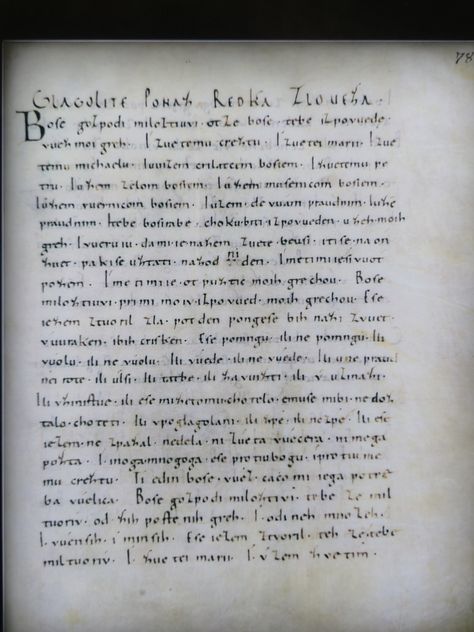 GLAGOLITE PONAZ REDKA ZLOUEZA.
Bose gozpodi miloztiuvi. otze bose. tebe izpovuede.
vuez moi greh. I zuetemu creztu. I zuetei marii. I zue
temu michaelu. Iuuizem crilatcem bosiem. I zuetemu pe
tru. Iusem zelom bosiem. Iusem musenicom bosiem.
Iusem vuernicom bosiem. Iuzem. devuam praudnim. Iuse
praudnim. Itebe bosirabe. chokubiti izpovueden. uzeh moih
greh. I vueruiu. da mi ie nazem zuete. beusi. iti se na on
zuet. pakise uztati. nazodni den. Imeti mi ie sivuot
pozem. Imeti mi ie. ot puztic moih grechou. Bose
miloztiuvi. primi moiv. izpovued. moih grechou. Ese
iezem ztvoril zla. pot den pongese bih nazi zvuet.
vuuraken. ibih crisken. Ese pomngu. ili ne pomngu. Ili
vuolu. ili ne vuolu. Ili vuede. ili ne vuede. Ili u ne praud
nei rote. ili ulsi. Ili tatbe. ili zavuizti. ili v uzmazi.
Ili vzinistue. ili ese mi se tomu chotelo. emuse mi bi ne doz
talo. choteti. Ili vpoglagolani. ili zpé. ili nezpé. Ili ese
iezem. ne zpazal. nedela. ni zueta vuecera. ni mega
pozta. I inoga mnogoga. ese protiubogu. i proti me
mu creztu. Ti edin bose. vuez. caco mi iega potre
ba vuelica. Bose gozpodi miloztivi. tebe ze mil
tuoriv. od zih postenih greh. I odineh mnozeh.
I vuensih. i minsih. Ese iezem ztvoril. teh ze tebe
miltuoriv. I zuetei marii. I vzem zvetim.